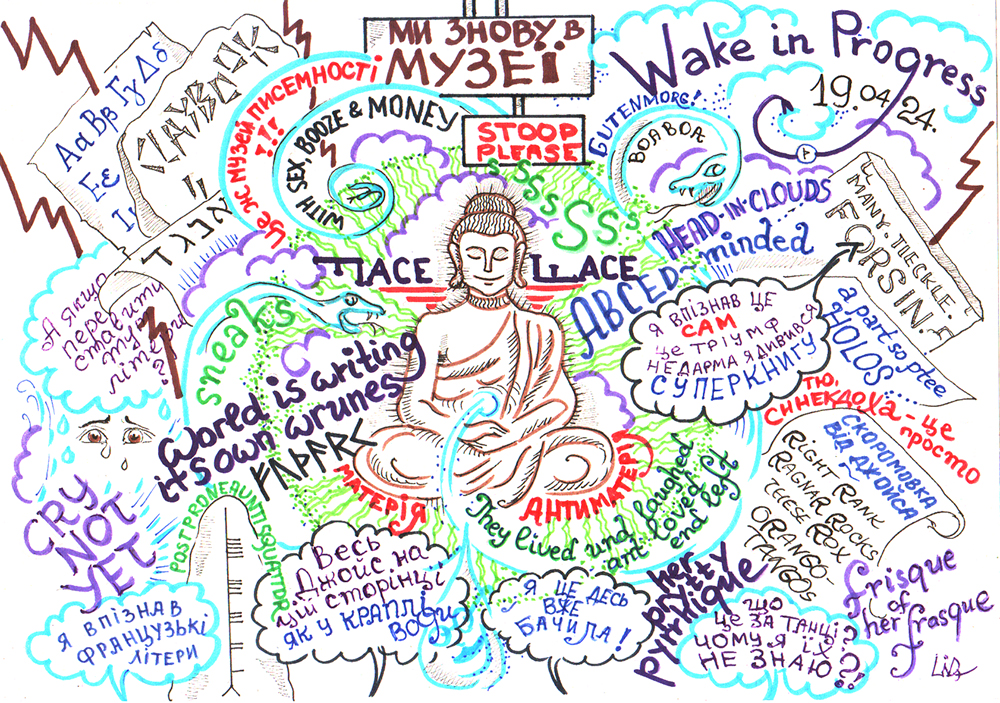 МИ ЗНОВУ В
МУЗЕЇ
Wake in Progress
19.04.24.
Аα Вв Гγ Δδ
Εε
CLAYBOOK
ЦЕ Ж МУЗЕЙ ПИСЕМНОСТІ
!!!
WITH SEX, BOOZE & MONEY
STOOP
PLEASE
SSSSSSs
GUTENMORG!
BOABOA
HEAD-IN-CLOUDS
ABCED~minded
MANY. TIECKLE.
FORSIN.
А ЯКЩО
пере
ставити
тут
літери
?
sneaks
ACE
ACE
World is writing
its own wrunes
Я ВПІЗНАВ ЦЕ
САМ
ЦЕ ТРІУМФ
НЕДАРМА Я ДИВИВСЯ
СУПЕРКНИГУ
a part so ptee
HOLOS
ТЮ,
СИНЕКДОХА - ЦЕ
ПРОСТО
СКОРОМОВКА
ВІД ДЖОЙСА
RIGHT RANK
RAGNAR ROCKS
THESE ROX
ORANGO-
TANGOS
CRY
NOT
YET
POSTPRONEAUNTISQUATTOR
МАТЕРІЯ
АНТИМАТЕРІЯ
They lived und laughed
ant loved
end left
Я ВПІЗНАВ
ФРАНЦУЗЬКІ
ЛІТЕРИ
Весь
Джойс на
цій сторінці
як у краплі
води
Я ЦЕ ДЕСЬ
ВЖЕ
БАЧИЛА!
her
prytty
pyrrhique
ЩО
ЦЕ ЗА ТАНЦІ?
ЧОМУ Я ЇХ
НЕ ЗНАЮ??!
frisque
of
her frasque